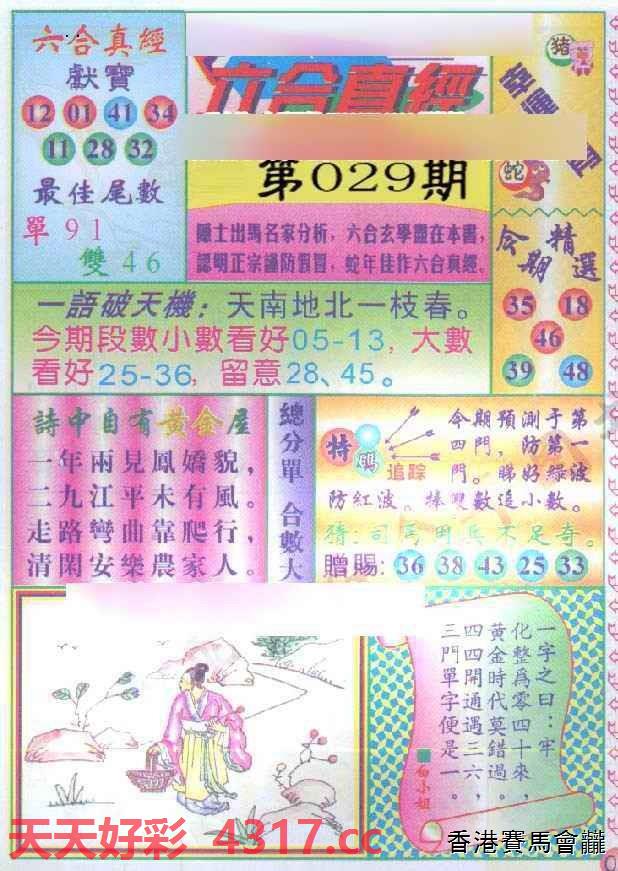 六合真經
獻寶
12 01 41 34
11 28 32
最佳尾數
單91
雙46
六合真經
第029期
隱士出馬名家分析，六合玄學盡在本書，
認明正宗謹防假冒，蛇年佳作六合真經。
豬
蛇
今期精選
35 18
46
39 48
一語破天機：天南地北一枝春。
今期段數小數看好05-13，大數
看好25-36，留意28、45。
詩中自有黃金屋
一年兩見鳳嬌貌，
二九江平未有風。
走路彎曲靠爬行，
清閑安樂農家人。
總分單 合數大
特碼
追踪
今期預測于第
四門，防第一
門。睇好綠波
防紅波。捧雙數追小數。
猜：司馬用兵不足奇。
贈賜：36 38 43 25 33
一字之曰：牢
化整爲零四十來，
黃金時代莫錯過，
四四開通遇三六，
三門單字便是一。
白小姐
天天好彩 4317.cc
香港賽馬會